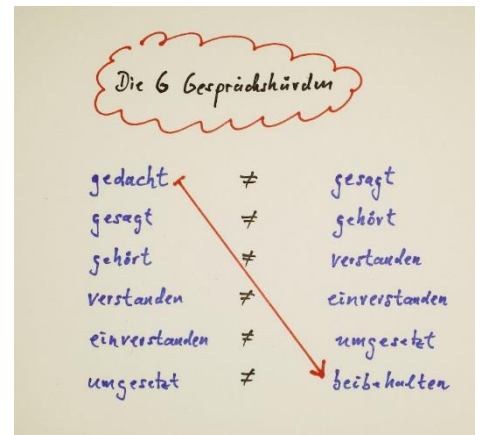 Die 6 Gesprächshürden
gedacht ≠ gesagt
gesagt ≠ gehört
gehört ≠ verstanden
verstanden ≠ einverstanden
einverstanden ≠ umgesetzt
umgesetzt ≠ beibehalten